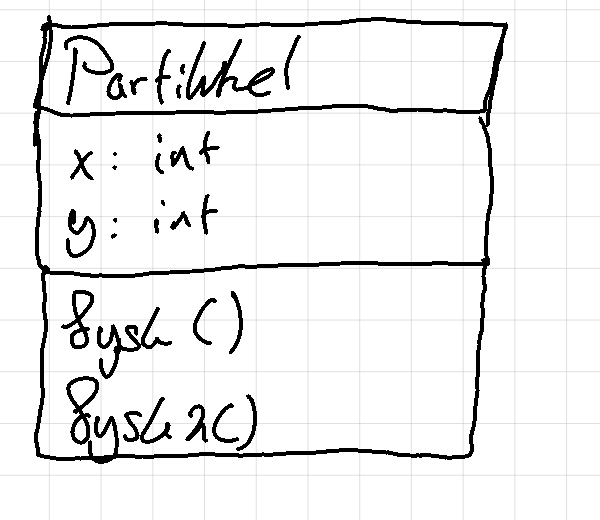 Partikkel
x: int
y: int
fysk()
fysk2()